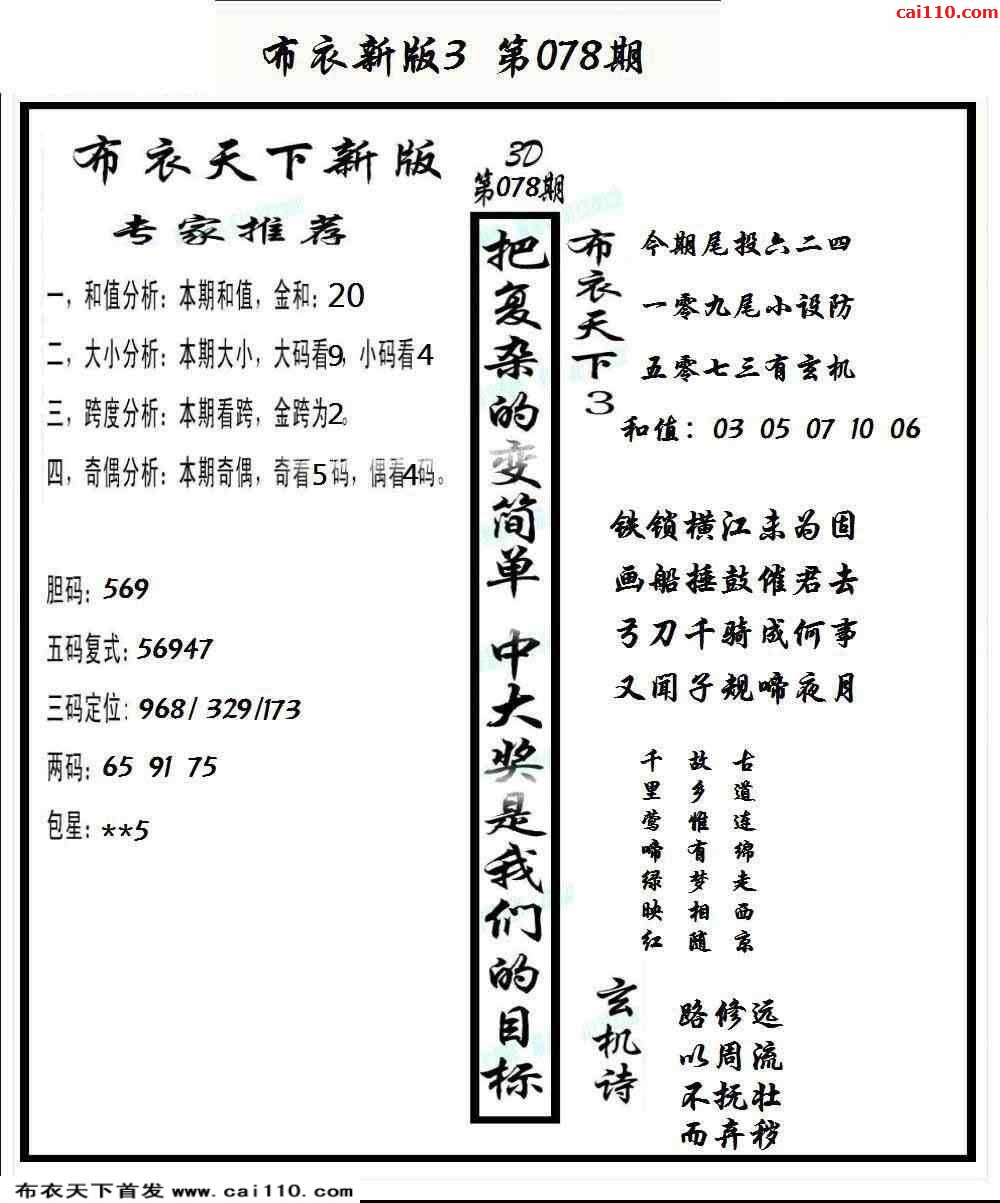 cai110.com
布衣新版3 第078期
布衣天下新版
专家推荐
一，和值分析：本期和值，金和：20
二，大小分析：本期大小，大码看9，小码看4
三，跨度分析：本期看跨，金跨为2。
四，奇偶分析：本期奇偶，奇看5码，偶看4码。
胆码：569
五码复式：56947
三码定位：968/ 329/173
两码：65 91 75
包星：**5
3D
第078期
把复杂的变简单 中大奖是我们的目标
布衣天下3
今期尾投六二四
一零九尾小设防
五零七三有玄机
和值： 03 05 07 10 06
铁锁横江未为固
画船捶鼓催君去
弓刀千骑成何事
又闻子规啼夜月
古道连绵走西京
故乡惟有梦相随
千里莺啼绿映红
玄机诗
路修远
以周流
不抚壮
而弃秽
布衣天下首发 www.cai110.com